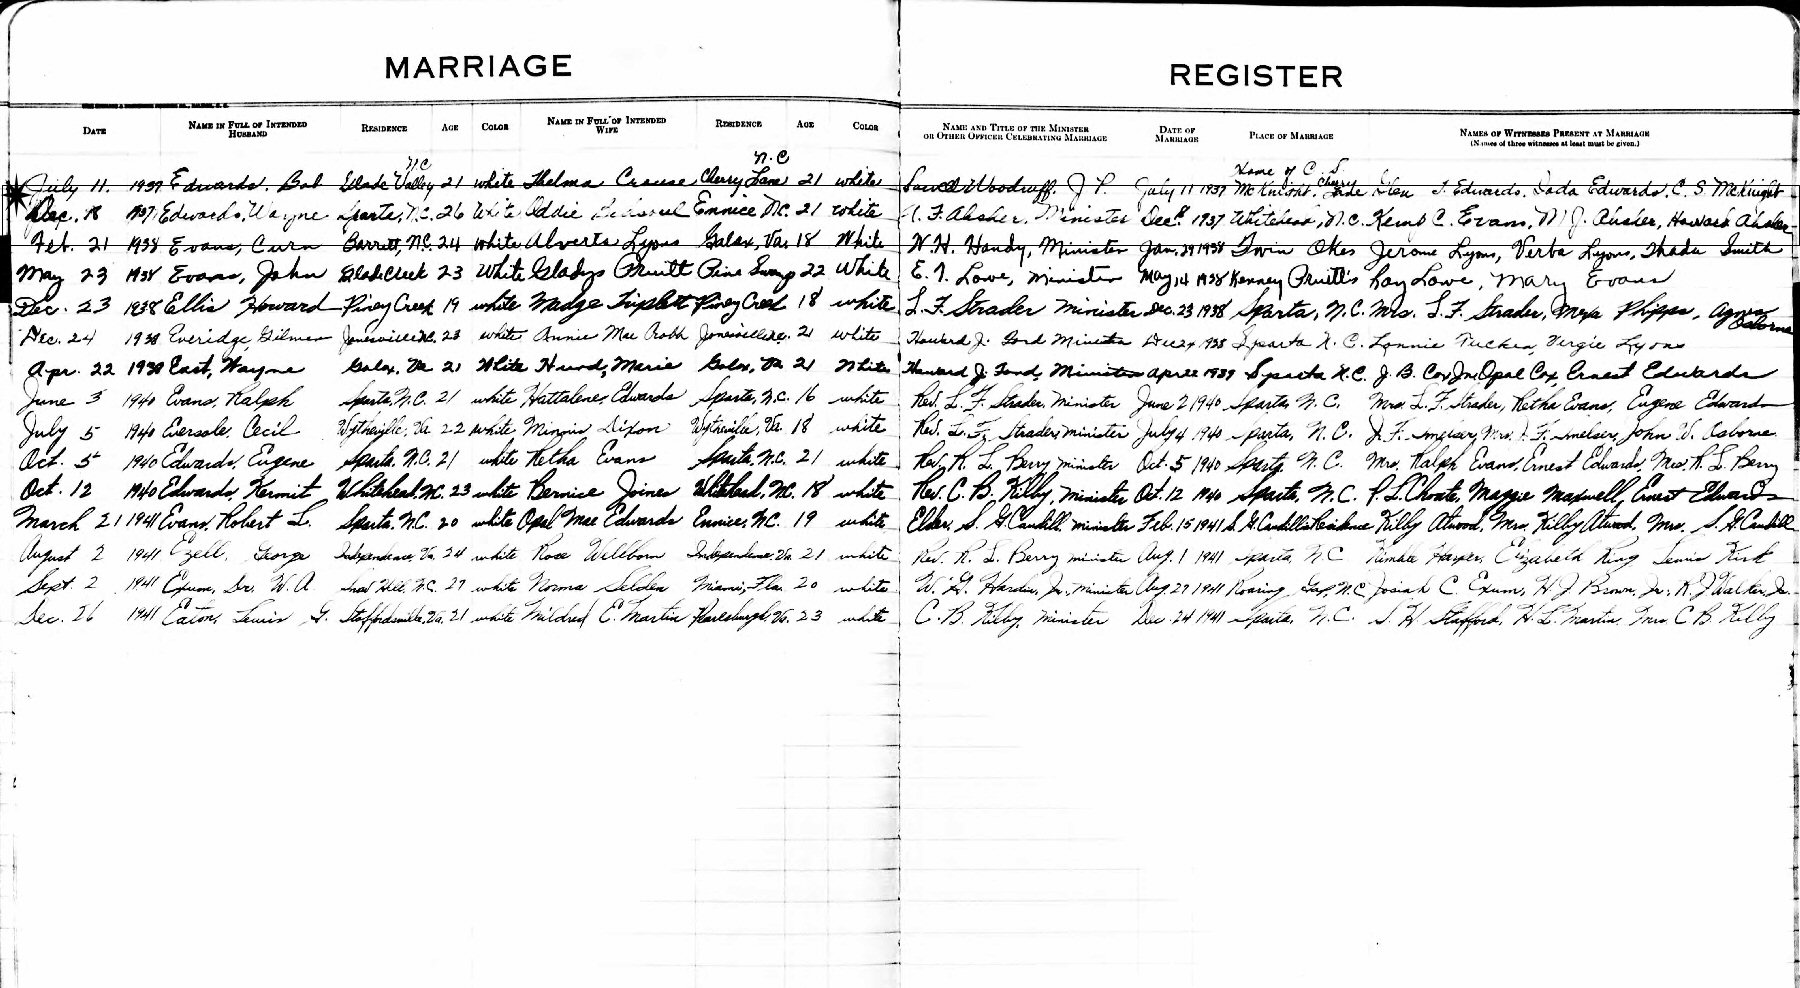 MARRIAGE
REGISTER
DATE NAME IN FULL OF INTENDED HUSBAND RESIDENCE AGE COLOR NAME IN FULL OF INTENDED WIFE RESIDENCE AGE COLOR NAME AND TITLE OF THE MINISTER OR OTHER OFFICER CELEBRATING MARRIAGE DATE OF MARRIAGE PLACE OF MARRIAGE NAMES OF WITNESSES PRESENT AT MARRIAGE (Names of three witnesses at least must be given.)
July 11. 1937 Edwards, Bob Glade Valley N.C 21 white Thelma Crouse Cherry Lane N.C 21 white Woodruff. J P. July 11 1937 Home of C S McKnight, Cherry Lane T. Edwards, Dada Edwards, C. S. McKnight
Dec. 8 1937 Edwards, Wayne Sparta, N.C. 26 White Oddie Ennice N.C. 21 White Minister Dec. 8 1937 Whitehead, N.C. Kemp C. Evans, Howard
Feb. 21 1938 Evans, Curn Barrett, N.C. 24 White Alverta Lyons Galax, Va. 18 White W. H. Handy, Minister Jan. 29 1938 Twin Oaks Jerome Lyons, Verba Lyons, Thada Smith
May 23 1938 Evans, John Glade Creek 23 White Gladys Pruitt Pine Swamp 22 White E. T. Lowe, Minister May 14 1938 Kenney Pruitt's Ray Lowe, Mary Evans
Dec. 23 1938 Ellis Howard Piney Creek 19 white Madge Triplett Piney Creek 18 white L. F. Strader Minister Dec. 23 1938 Sparta, N.C. Mrs. L. F. Strader, Phipps, Agnes Osborne
Dec. 24 1938 Everidge, Gilmer Jonesville N.C. 23 white Annie Mae Robb Jonesville N.C. 21 white Howard J. Ford Minister Dec 24 1938 Sparta N. C. Lonnie Tucker, Vergie Lyons
Apr. 22 1939 East, Wayne Galax, Va 21 White Hurd, Marie Galax, Va 21 White Howard J. Ford, Minister Apr 22 1939 Sparta N.C. J. B. Cox Jr., Opal Cox, Ernest Edwards
June 3 1940 Evans, Ralph Sparta, N.C. 21 white Hattalene Edwards Sparta, N.C. 16 white Rev. L. F. Strader, Minister June 2 1940 Sparta, N. C. Mrs. L. F. Strader, Retha Evans, Eugene Edwards
July 5 1940 Eversole, Cecil Wytheville, Va 22 white Minnie Dixon Wytheville, Va. 18 white Rev. L. F. Strader, minister July 4 1940 Sparta, N. C. J. F. Smelser, Mrs. J. F. Smelser, John W. Osborne
Oct. 5 1940 Edwards, Eugene Sparta, N.C. 21 white Retha Evans Sparta, N.C. 21 white Rev. R. L. Berry minister Oct. 5 1940 Sparta, N. C. Mrs. Ralph Evans, Ernest Edwards, Mrs. R. L. Berry
Oct. 12 1940 Edwards, Kermit Whitehead, N.C. 23 white Bernice Joines Whitehead, N.C. 18 white Rev. C. B. Kilby, minister Oct. 12 1940 Sparta, N.C. P. L. Choate, Maggie Maxwell, Ernest Edwards
March 21 1941 Evans, Robert L. Sparta, N.C. 20 white Opal Mae Edwards Ennice, N.C. 19 white Elder, S. G. Caudill, minister Feb. 15 1941 S. G. Caudill's Residence Kilby Atwood, Mrs. Kilby Atwood, Mrs. S. G. Caudill
August 2 1941 Ezell, George Independence, Va. 24 white Rose Wellborn Independence, Va. 21 white Rev. R. L. Berry minister Aug. 1 1941 Sparta, N C Harper, Elizabeth King Lewis Kirk
Sept. 2 1941 Exum, Dr. W. A Snow Hill, N.C. 27 white Norma Selden Miami, Fla. 20 white W. G. Hardin, Jr., minister Aug. 27 1941 Roaring Gap, N.C. Josiah C. Exum, H. J. Brown, Jr., R. J. Walker, Jr.
Dec. 26 1941 Eaton, Lewis G. Staffordsville, Va. 21 white Mildred E. Martin Pearisburg, Va. 23 white C. B. Kilby, minister Dec. 24 1941 Sparta, N.C. S. H. Stafford, H. L. Martin, Mrs. C B. Kilby